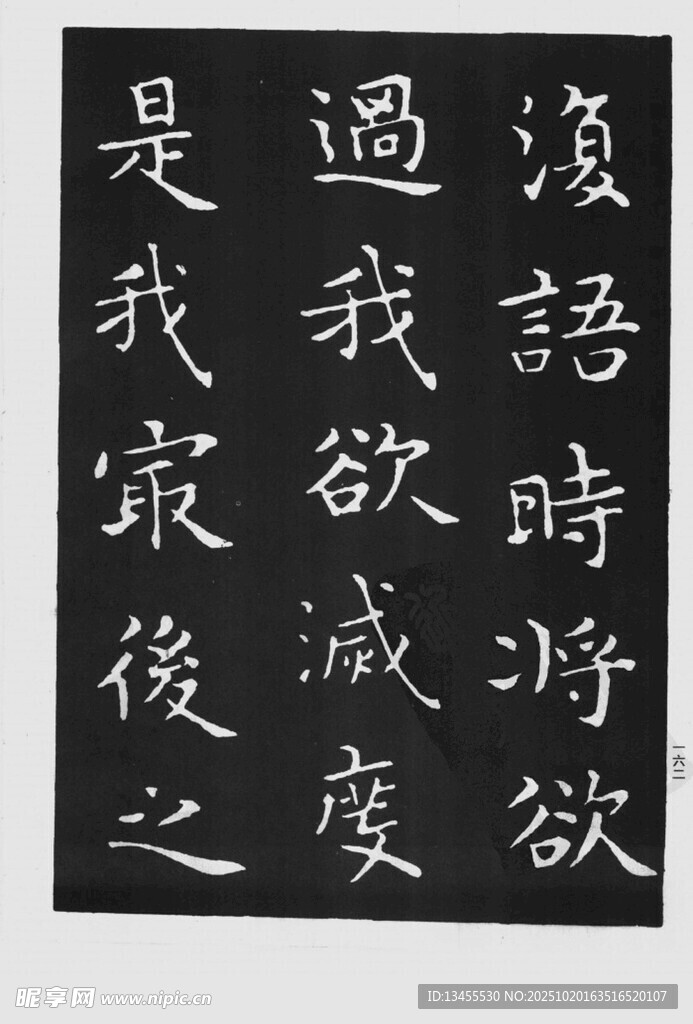 復語時将欲
過我欲滅度
是我㝡後之
一六二
昵享网 www.nipic.cn
ID:13455530 NO:20251020163516520107